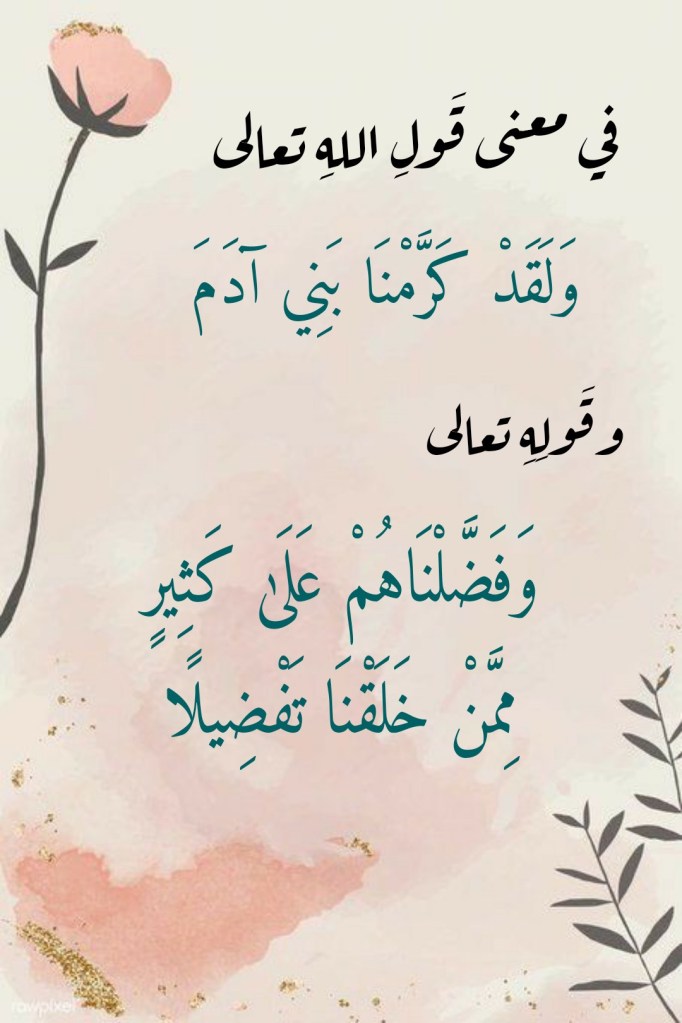 في معنى قَولِ اللهِ تعالى
وَلَقَدْ كَرَّمْنَا بَنِي آدَمَ
وقَولِهِ تعالى
وَفَضَّلْنَاهُمْ عَلَىٰ كَثِيرٍ
مِمَّنْ خَلَقْنَا تَفْضِيلًا
rawpixel